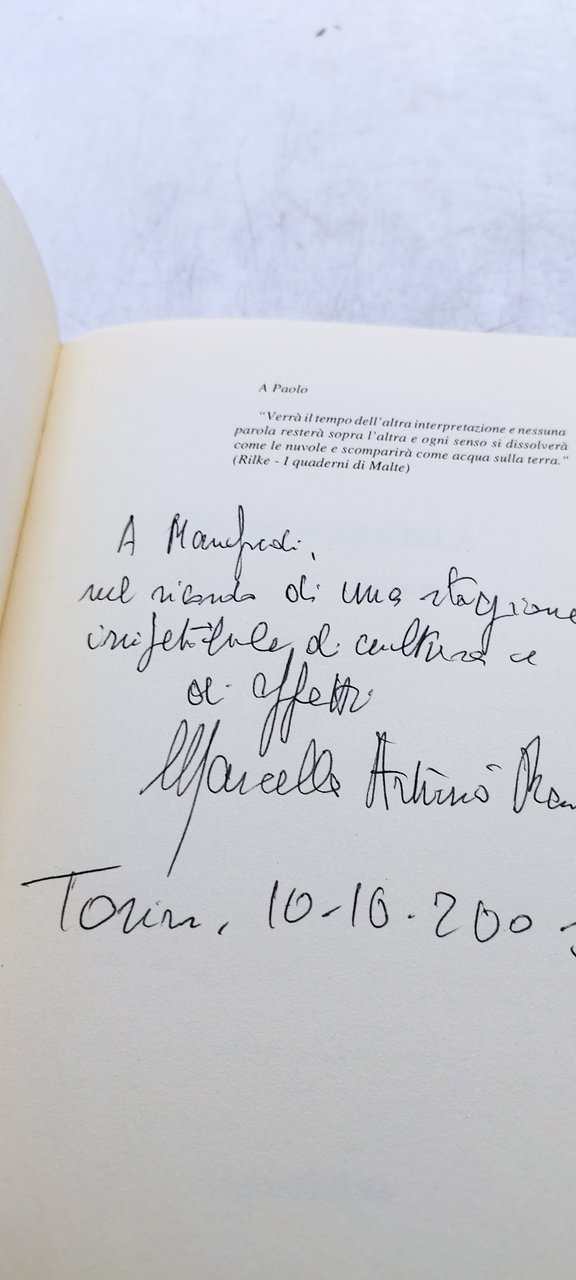 A Paolo
"Verrà il tempo dell'altra interpretazione e nessuna
parola resterà sopra l'altra e ogni senso si dissolverà
come le nuvole e scomparirà come acqua sulla terra."
(Rilke - I quaderni di Malte)
A Manfredi,
nel ricordo di una stagione
irripetibile di cultura e
di affetti
Marcella
Torino, 10-10-200